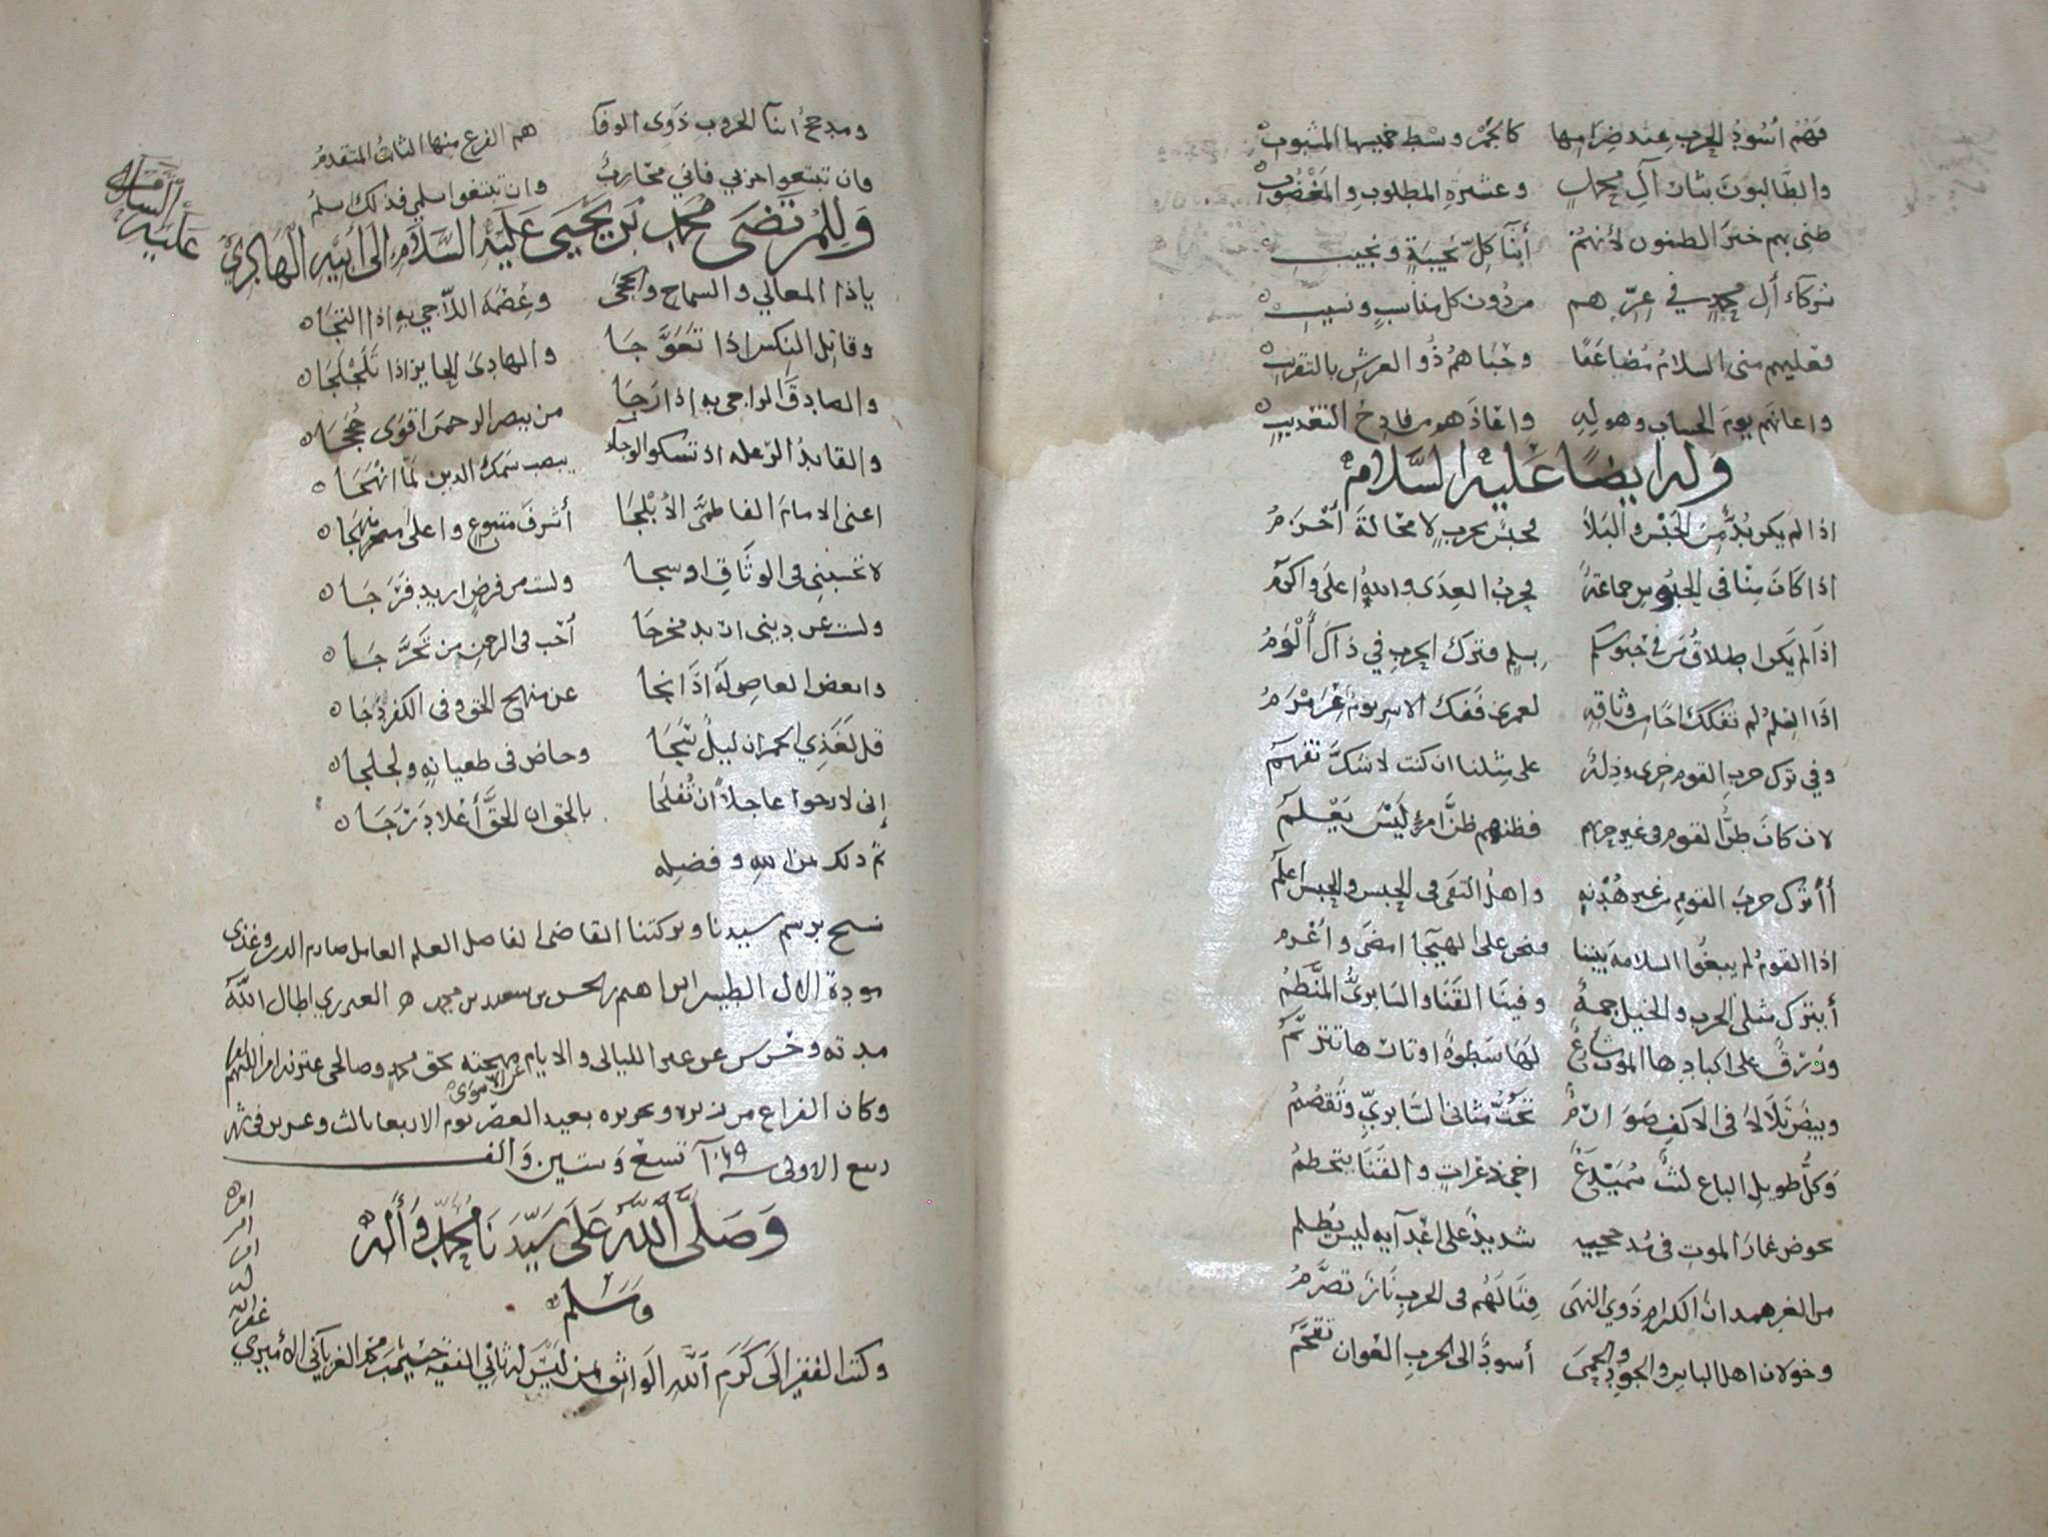 فهم اسود الحرب عند ضرامها كالجمر وسط خميسها المشبوب
والطالبون بثار آل محمد وعشيرة المطلوب والمغصوب
ظني بهم خير الظنون لانهم أبنا كل نجيبة ونجيب
شركاء آل محمد في عزهم من دون كل مناسب ونسيب
فعليهم مني السلام مضاعفا وحباهم ذو العرش بالتقريب
واعانهم يوم الحساب وهوله وانقاذهم من فادح التعذيب
وله ايضا عليه السلام
اذا لم يكن بد من الحبس والبلا فحبس بحرب لا محالة أحزم
اذا كان منا في الحبوس جماعة فحرب العدى والله اعلى واكرم
اذا لم يكن اطلاق من في حبوسكم بسلم فترك الحرب في ذاك ألوم
اذا السلم لم تفكك اخا من وثاقه لعمري ففك الاسر يوم عرمرم
وفي ترك حرب القوم خزي وذلة على مثلنا ان كنت لا شك تفهم
لان كان ظن القوم في غير حربهم فظنهم ظن امرئ ليس يعلم
أأترك حرب القوم من غير هدنة واهل التقى في الحبس والحبس اعلم
اذا القوم لم يبغوا السلامة بيننا فنحن على الهيجا امضى واعزم
أيترك مثلي الحرب والخيل جمة وفينا القنا والسابري المنظم
وزرق على اكبادها الموت شارع لها سطوة اوتارها تترنم
وبيض تلالا في الاكف صوارم تحت مثاني السابري وتقصم
وكل طويل الباع ليث سميدع اخي غمرات والقنا يتحطم
يخوض غمار الموت في مدحجيه شديد على اعدآيه ليس يظلم
من الغر همدان الكرام ذوي النهى قتالهم في الحرب نار تضرم
وخولان اهل الباس والجود والحمى أسود الى الحرب العوان تقحم
ومذحج ابنا الحروب ذوي الوفا هم الفرع منها الثابت المتقدم
وان تبتغوا حربي فاني محارب وان تبتغوا سلمي فذلك اسلم
وللمرتضى محمد بن يحيى عليه السلام الى ابيه الهادي
عليه السلام
ياذا المعالي والسماح والحجى وعصمة اللاجي به اذا التجا
وقاتل النكس اذا تعوجا والهادي الحايز اذا تلجلجا
والصادق الراجي به اذا رجا من يبصر الرحمن اقوى حججا
والقايد الرعله اذ تشكو الوجا ينصب سمك الدين لما انهجا
اعني الامام الفاطمي الأبلجا أشرف متبوع واعلى منهجا
لا تحسبني في الوثاق اوسجا ولست من فرض اريد فرجا
ولست عن ديني اريد مخرجا أحب في الرحمن من تحرجا
وابغض العاصي له اذا نجا عن منهج الحق وفي الكفر دجا
قل لغذي الخمر ان ليل سجا وخاض في طغيانه ولجلجا
إني لارجوا عاجلا أن تفلجا بالحق ان الحق أعلا درجا
تم ذلك بمن الله وفضله
نسخ برسم سيدنا وبركتنا القاضي الفاضل العلم العامل صارم الدين وغذي
مودة الال الطيبين ابراهيم بن الحسن بن سعيد بن محمد العنزري اطال الله
مدته وحرس عن غير الليالي والايام مهجته بحق محمد وصالحي عترته امين اللهم امين
وكان الفراغ من زبره وتحريره بعيد العصر يوم الاربعا ثالث وعشرين في شهر
ربيع الاولى سنة ١٠٦٩ تسع وستين والف
وصلى الله على سيدنا محمد وآله
وسلم
وكتب الفقير الى كرم الله الواثق بمن ليس له ثاني الفقيه محمد الغرباني الاميري
غفر الله
له